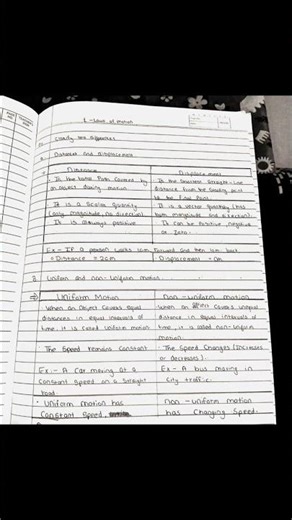 1. Laws of Motion
Clarify the difference
Distance and displacement
Distance
Displacement
Is the total Path covered by
an object during motion
Is the shortest Straight-line
distance from the Starting point
to the final Point
It is a Scalar quantity
(only magnitude, no direction)
It is always positive
It is a vector quantity (has
both magnitude and direction)
It can be Positive negative
or Zero.
Ex:- If a person walks 1m forward and then 1m back
= Distance = 2cm
Displacement = 0m
B. Uniform and non-Uniform motion.
Uniform Motion
Non-uniform motion
When an Object Covers equal
distances in equal intervals of
time, it is called Uniform motion
When an object covers unequal
distance in equal intervals of
time, it is called non-Uniform
motion.
The Speed remains Constant
The Speed Changes (Increases
or decreases).
Ex:- A Car moving at a
Constant Speed on a Straight
road.
Ex:- A bus moving in
City traffic.
Uniform motion has
Constant Speed.
non-Uniform motion
has Changing Speed.